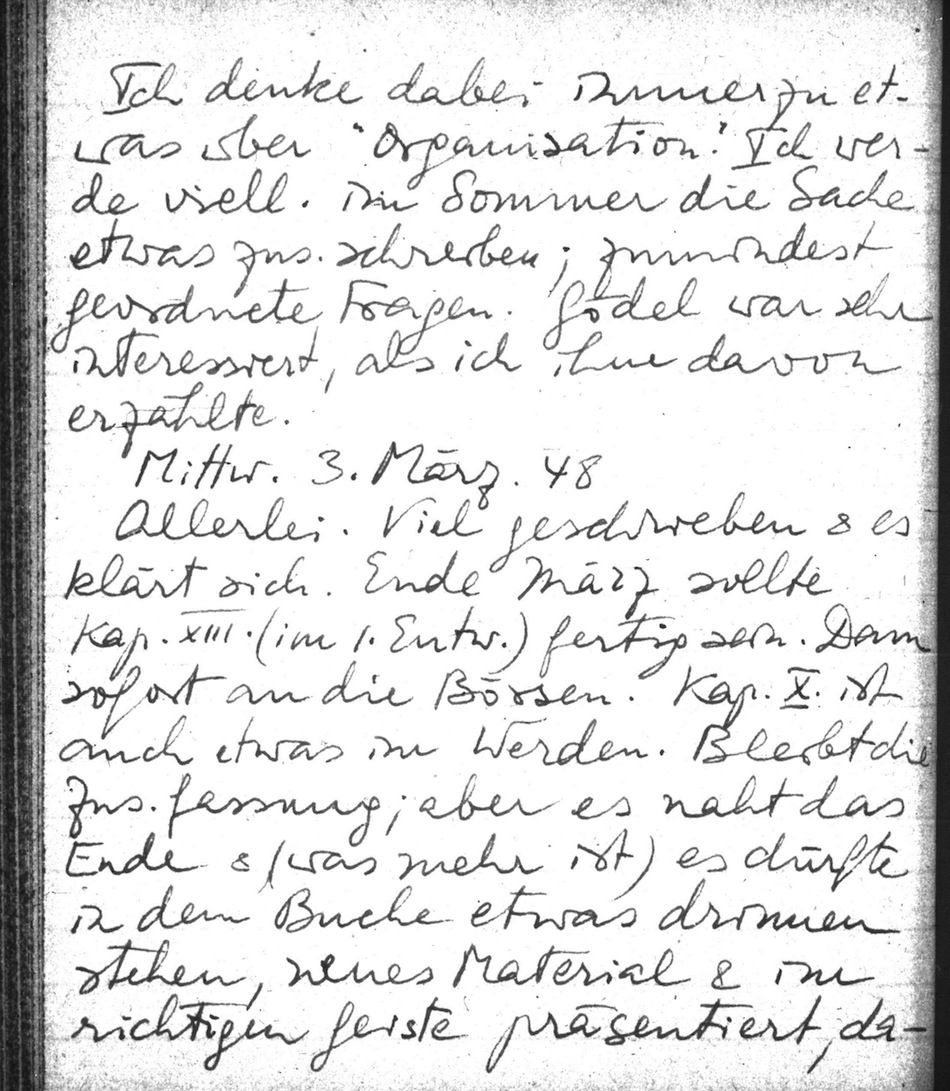 Ich denke dabei immerzu et-
was über "Organisation". Ich wer-
de viell. im Sommer die Sache
etwas zus. schreiben; zumindest
geordnete Fragen. Gödel war sehr
interessiert, als ich ihm davon
erzählte.
Mittw. 3. März. 48
Allerlei. Viel geschrieben & es
klärt sich. Ende März sollte
Kap. XIII. (im 1. Entw.) fertig sein. Dann
sofort an die Börsen. Kap. X. ist
auch etwas im Werden. Bleibt die
Zus. fassung; aber es naht das
Ende & (was mehr ist) es dürfte
in dem Buche etwas drinnen
stehen, neues Material & im
richtigen Geiste präsentiert, da-